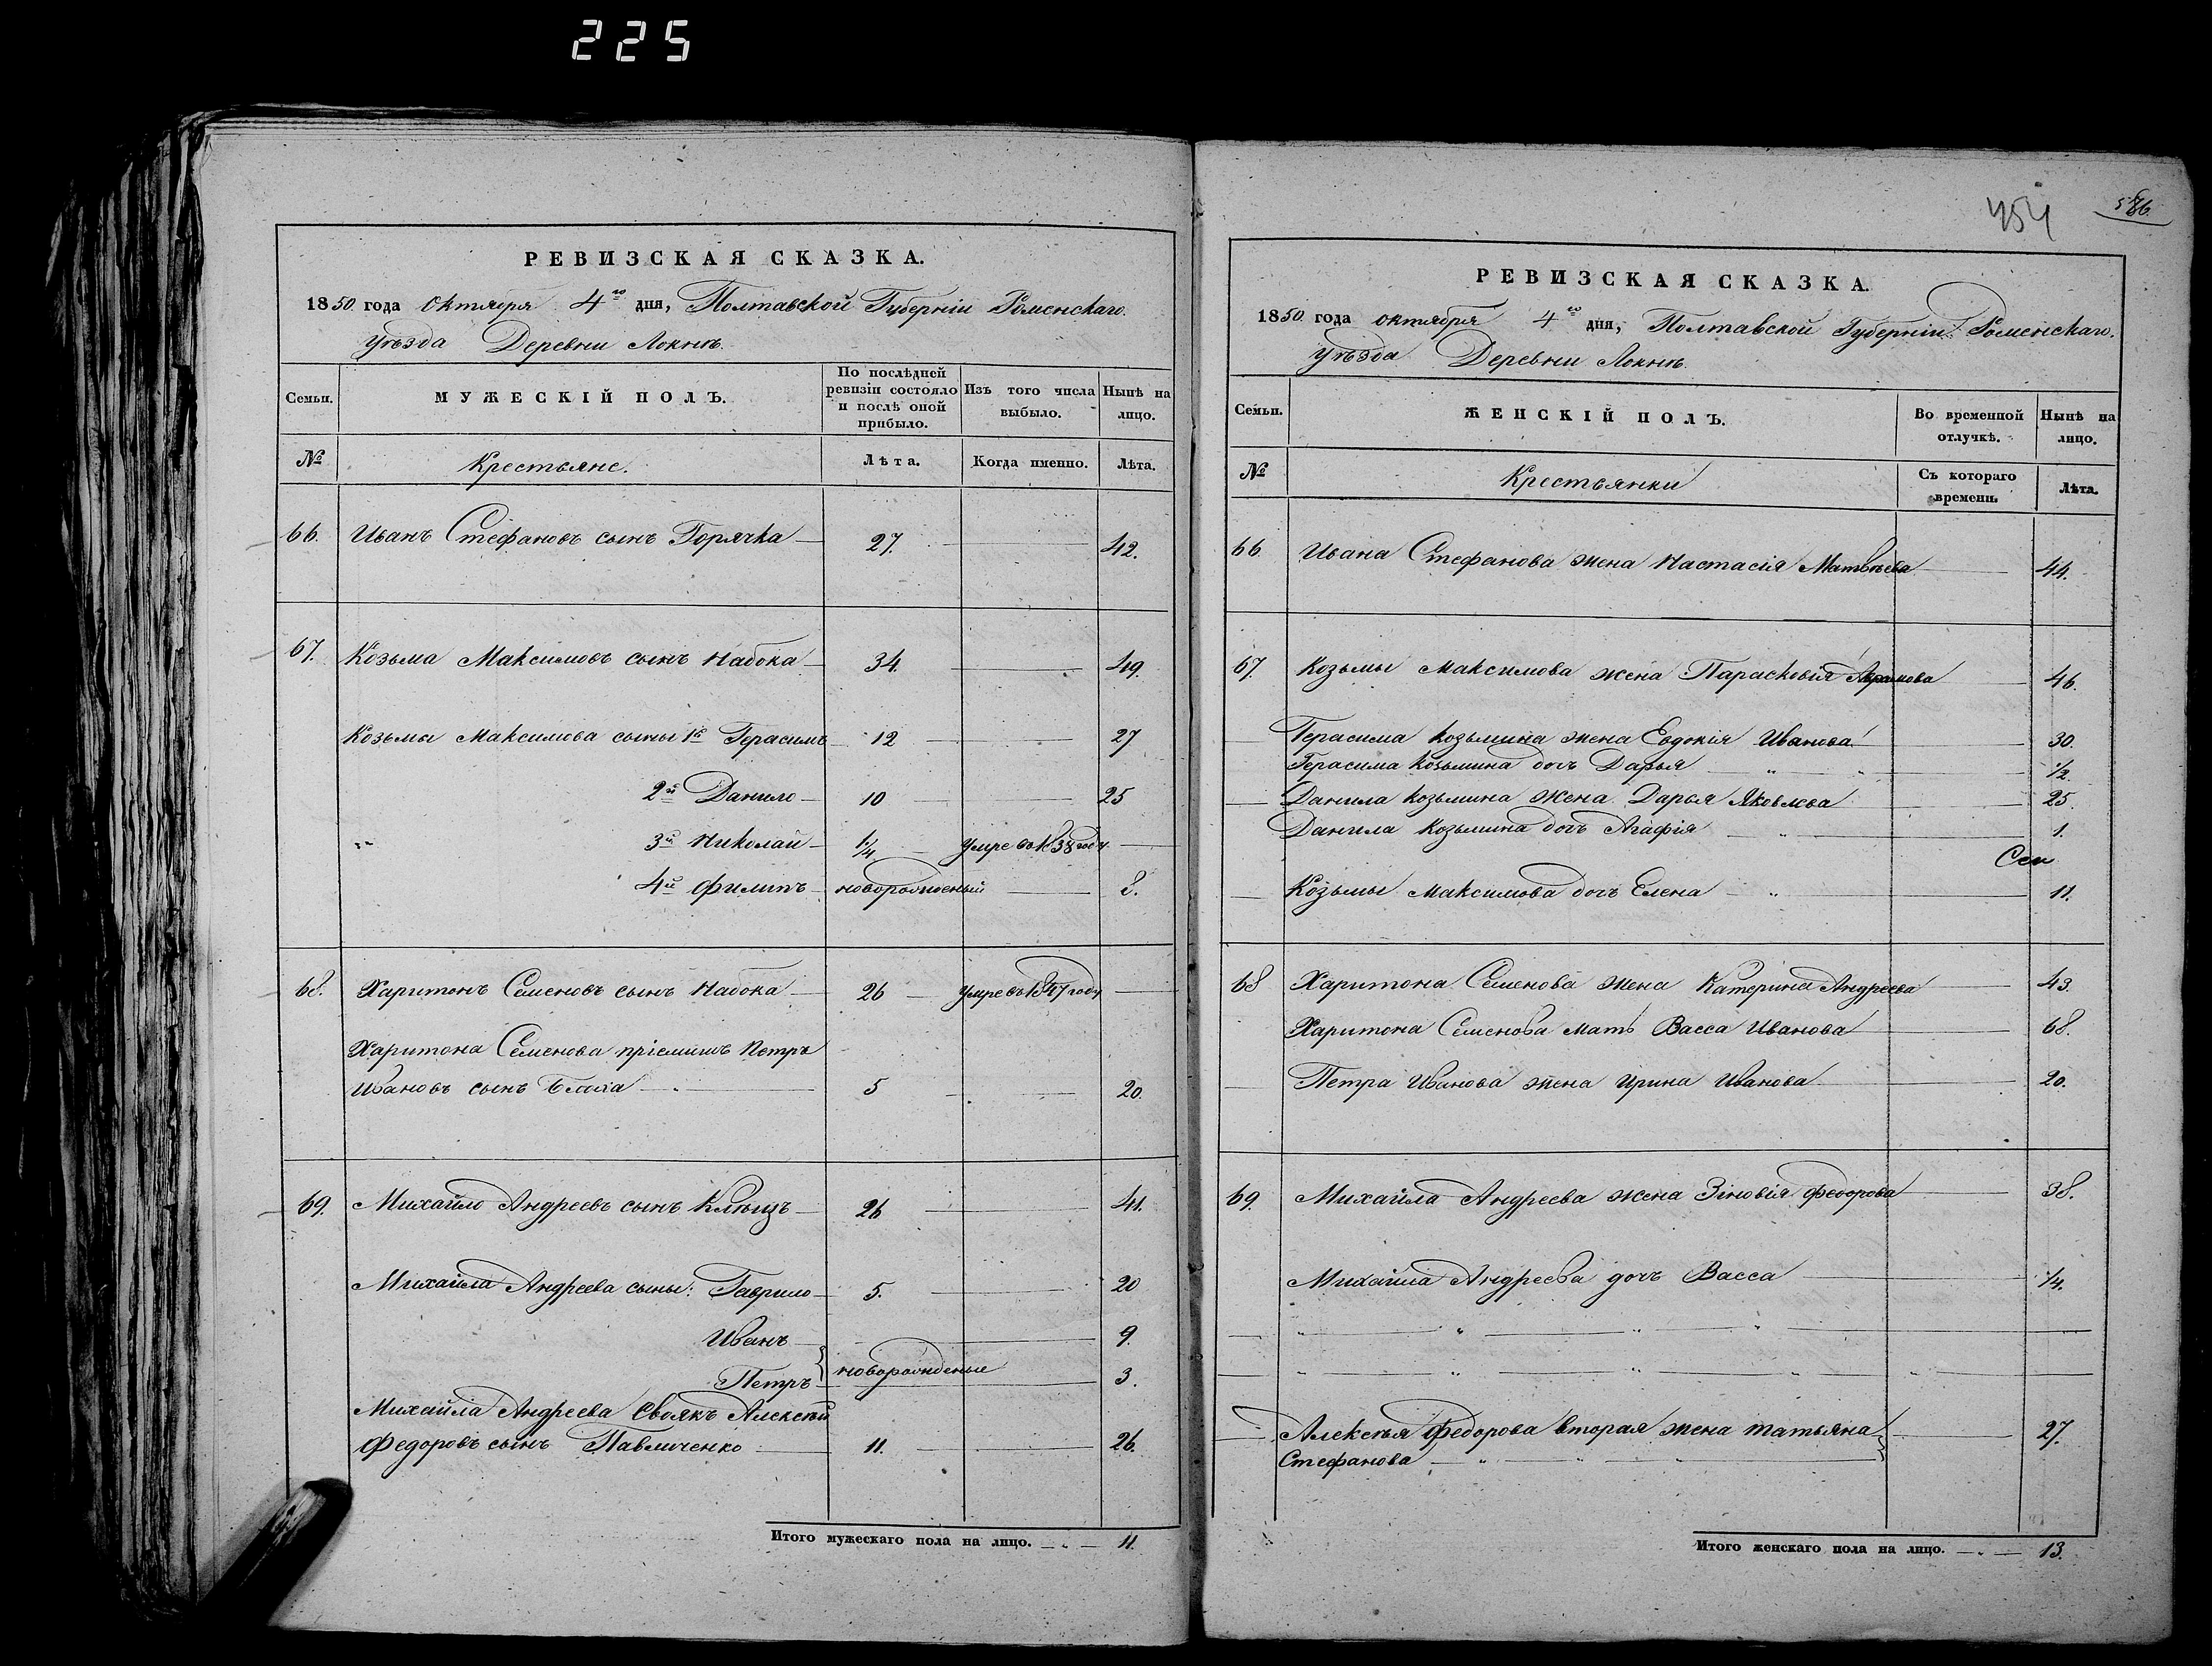 225
РЕВИЗСКАЯ СКАЗКА.
1850 года Октября 4го дня, Полтавской Губерніи Роменскаго
Уѣзда Деревни Локнѣ.
Семьи.
МУЖЕСКІЙ ПОЛЪ.
По послѣдней ревизіи состояло и послѣ оной прибыло.
Изъ того числа выбыло.
Нынѣ на лицо.
№
Крестьяне.
Лѣта.
Когда именно.
Лѣта.
66. Иванъ Стефановъ сынъ Горячка 27. 42.
67. Козьма Максимовъ сынъ Набока 34. 49.
Козьмы Максимова сыны 1й Герасимъ 12 27
2й Данило 10 25
3й Николай 1/4 умре въ 1838 году
4й Филипъ новорожденый 8.
68. Харитонъ Семеновъ сынъ Набока 26 умре въ 1847 году
Харитона Семенова пріемишъ Петръ
Ивановъ сынъ 5 20.
69. Михайло Андреевъ сынъ 26 41.
Михайла Андреева сыны: Гаврило 5. 20
Иванъ 9.
Петръ новорожденые 3.
Михайла Андреева своякъ Алексѣй
Федоровъ сынъ Павличенко 11. 26.
Итого мужескаго пола на лицо. 11.
454
586
РЕВИЗСКАЯ СКАЗКА.
1850 года октября 4го дня, Полтавской Губерніи Роменскаго.
Уѣзда Деревни Локнѣ.
Семьи.
ЖЕНСКІЙ ПОЛЪ.
Во временной отлучкѣ.
Нынѣ на лицо.
№
Крестьянки
Съ котораго времени.
Лѣта.
66 Ивана Стефанова жена Настасія Матвѣева 44.
67. Козьмы Максимова жена Парасковія Абрамова 46.
Герасима Козьмина жена Евдокія Иванова 30.
Герасима Козьмина дочь Дарья 1/2
Данила Козьмина жена Дарья Яковлева 25.
Данила Козьмина дочь Агафія 1.
Козьмы Максимова дочь Елена 11.
68 Харитона Семенова жена Катерина Андреева 43.
Харитона Семенова мать Васса Иванова 68.
Петра Иванова жена Ирина Иванова 20.
69. Михайла Андреева жена Зіновія Федорова 38.
Михайла Андреева дочь Васса 1/4.
Алексѣя Федорова вторая жена Татьяна 27.
Стефанова
Итого женскаго пола на лицо. 13.